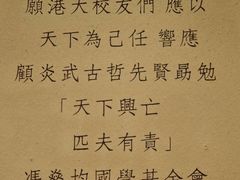 願港大校友們 應以
天下為己任 響應
顧炎武古哲先賢勗勉
「天下興亡
匹夫有責」
馮燊均國學基金會